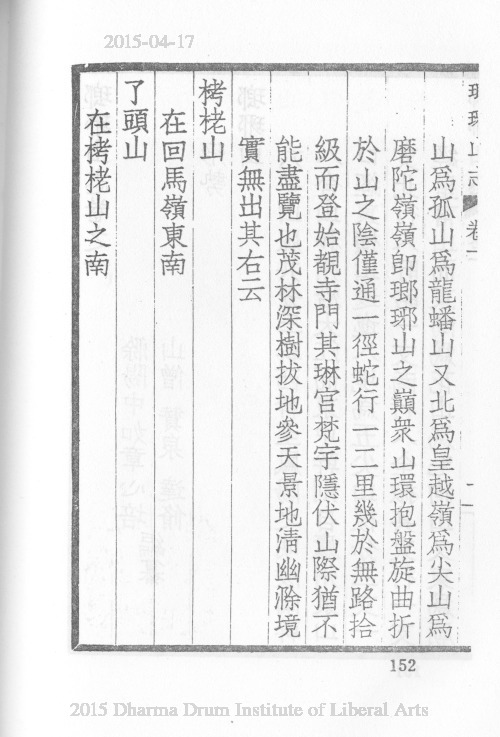 2015-04-17
琅琊山志 卷一
山爲孤山爲龍蟠山又北爲皇越嶺爲尖山爲
磨陀嶺嶺卽瑯琊山之巔衆山環抱盤旋曲折
於山之陰僅通一徑蛇行一二里幾於無路拾
級而登始覩寺門其琳宫梵宇隱伏山際猶不
能盡覽也茂林深樹拔地參天景地淸幽滁境
實無出其右云
栲栳山
在回馬嶺東南
了頭山
在栲栳山之南
152
2015 Dharma Drum Institute of Liberal Arts